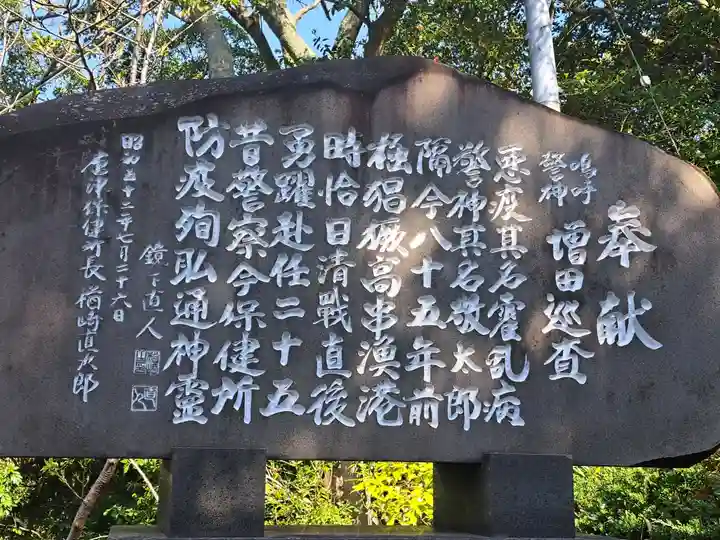 奉献
嗚呼
警神
増田巡査
悪疫其名霍乱病
警神其名敬太郎
隔今八十五年前
極猖獗高串漁港
時恰日清戦直後
勇躍赴任二十五
昔警察今保健所
防疫殉職通神霊
鏡山直人
昭和五十二年七月二十六日
唐津保健所長 楢崎直次郎